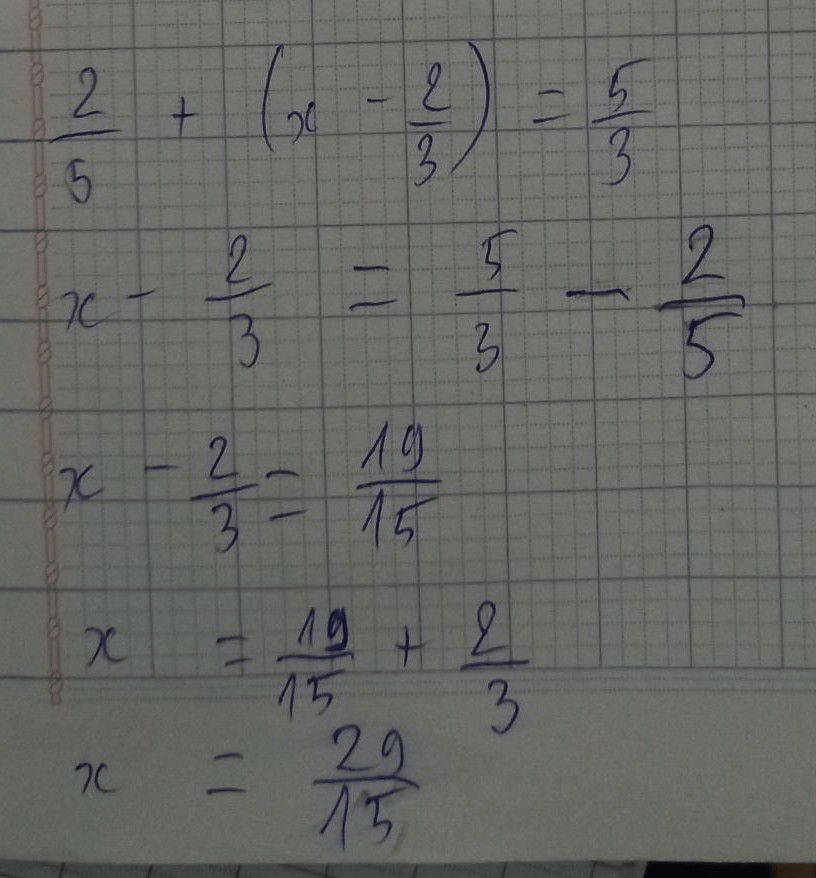 2/5 + (x - 2/3) = 5/3
x - 2/3 = 5/3 - 2/5
x - 2/3 = 19/15
x = 19/15 + 2/3
x = 29/15